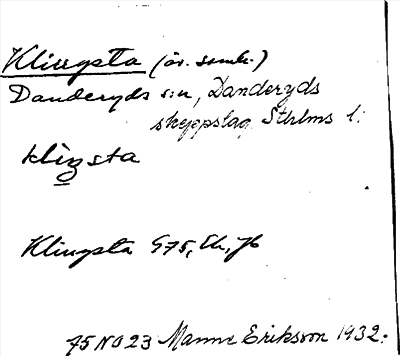 Klingsta (äv. samh.)
Danderyds s:n, Danderyds
skeppslag Sthlms l.
kliŋsta
Klingsta G75, Ek, Jb
75 NO 23 Manne Eriksson 1932.